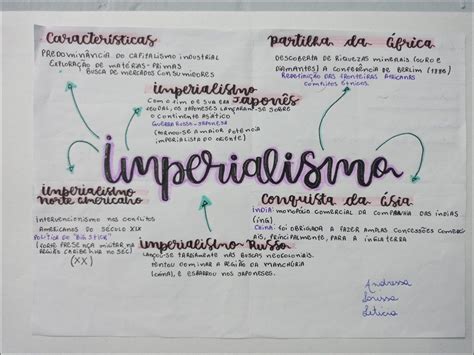 Características
PREDOMINÂNCIA DO CAPITALISMO INDUSTRIAL
EXPLORAÇÃO DE MATÉRIAS-PRIMAS
BUSCA DE MERCADOS CONSUMIDORES
partilha da África
DESCOBERTA DE RIQUEZAS MINERAIS (OURO E
DIAMANTES) A CONFERÊNCIA DE BERLIM
REDEFINIÇÃO DAS FRONTEIRAS AFRICANAS
CONFLITOS ÉTNICOS.
imperialismo
Japonês
COM O FIM DE SUA ERA
FEUDAL, OS JAPONESES LANÇARAM-SE SOBRE
O CONTINENTE ASIÁTICO
GUERRA RUSSO-JAPONESA
(TORNOU-SE A MAIOR POTÊNCIA
IMPERIALISTA DO ORIENTE)
imperialismo
imperialismo
norte americano
INTERVENCIONISMO NOS CONFLITOS
AMERICANOS DO SÉCULO XIX
POLÍTICA DO "BIG STICK"
(FORTE PRESENÇA MILITAR NA
REGIÃO CARIBENHA NO SEC)
(XX)
conquista da Ásia
ÍNDIA: MONOPÓLIO COMERCIAL DA COMPANHIA DAS ÍNDIAS
(ING)
CHINA: FOI OBRIGADA A FAZER AMPLAS CONCESSÕES COMERCI
AIS, PRINCIPALMENTE, PARA A INGLATERRA
imperialismo Russo
LANÇOU-SE TARDIAMENTE NAS BUSCAS NEOCOLONIAIS
TENTOU DOMINAR A REGIÃO DA MANCHÚRIA
(CHINA), E ESBARROU NOS JAPONESES.
Andressa
Larissa
Letícia